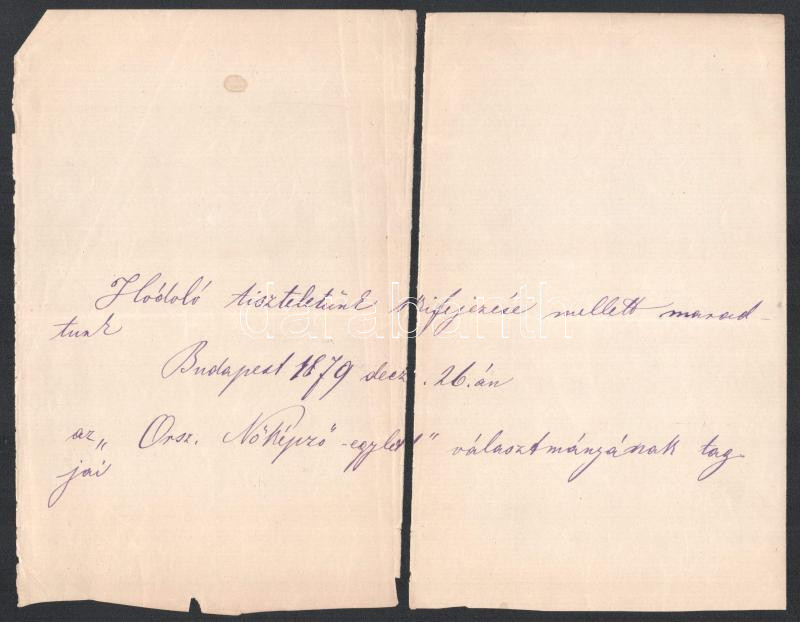 Hódoló tiszteletünk kifejezése mellett marad-
tunk
Budapest 1879 decz. 26.án
az „Orsz. Nőképző-egylet" választmányának tag
jai
darabanth